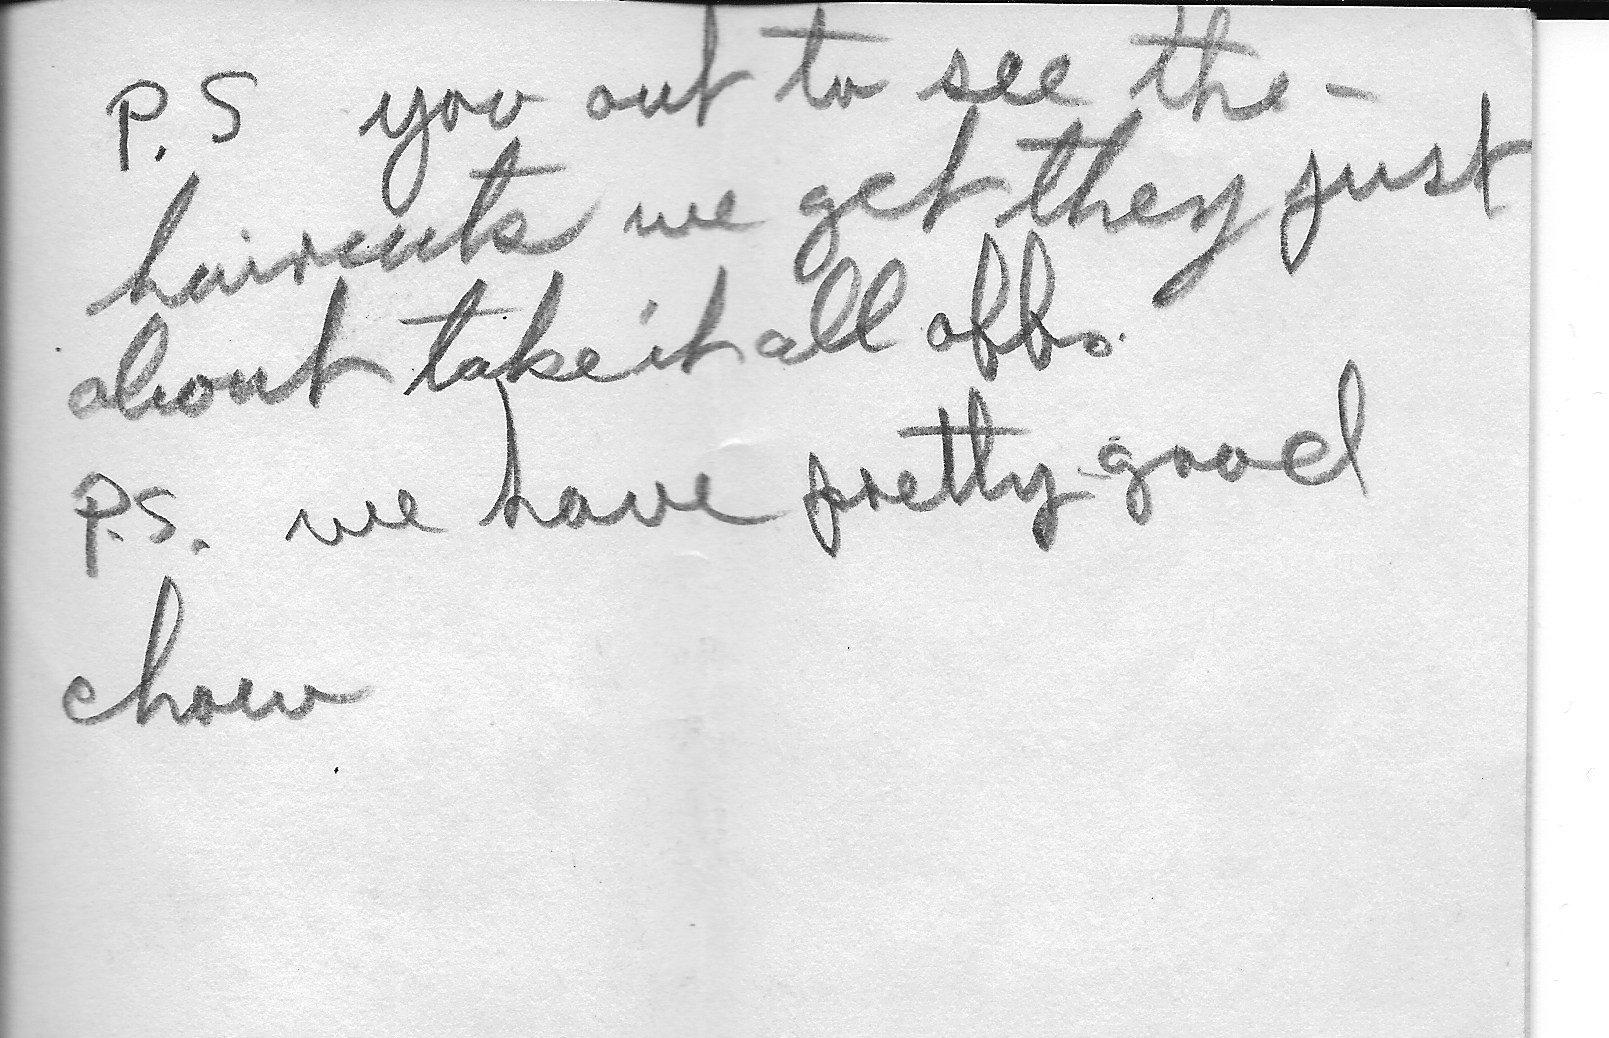 P.S you out to see the -
haircuts we get they just
about take it all off.
P.S. we have pretty good
chow